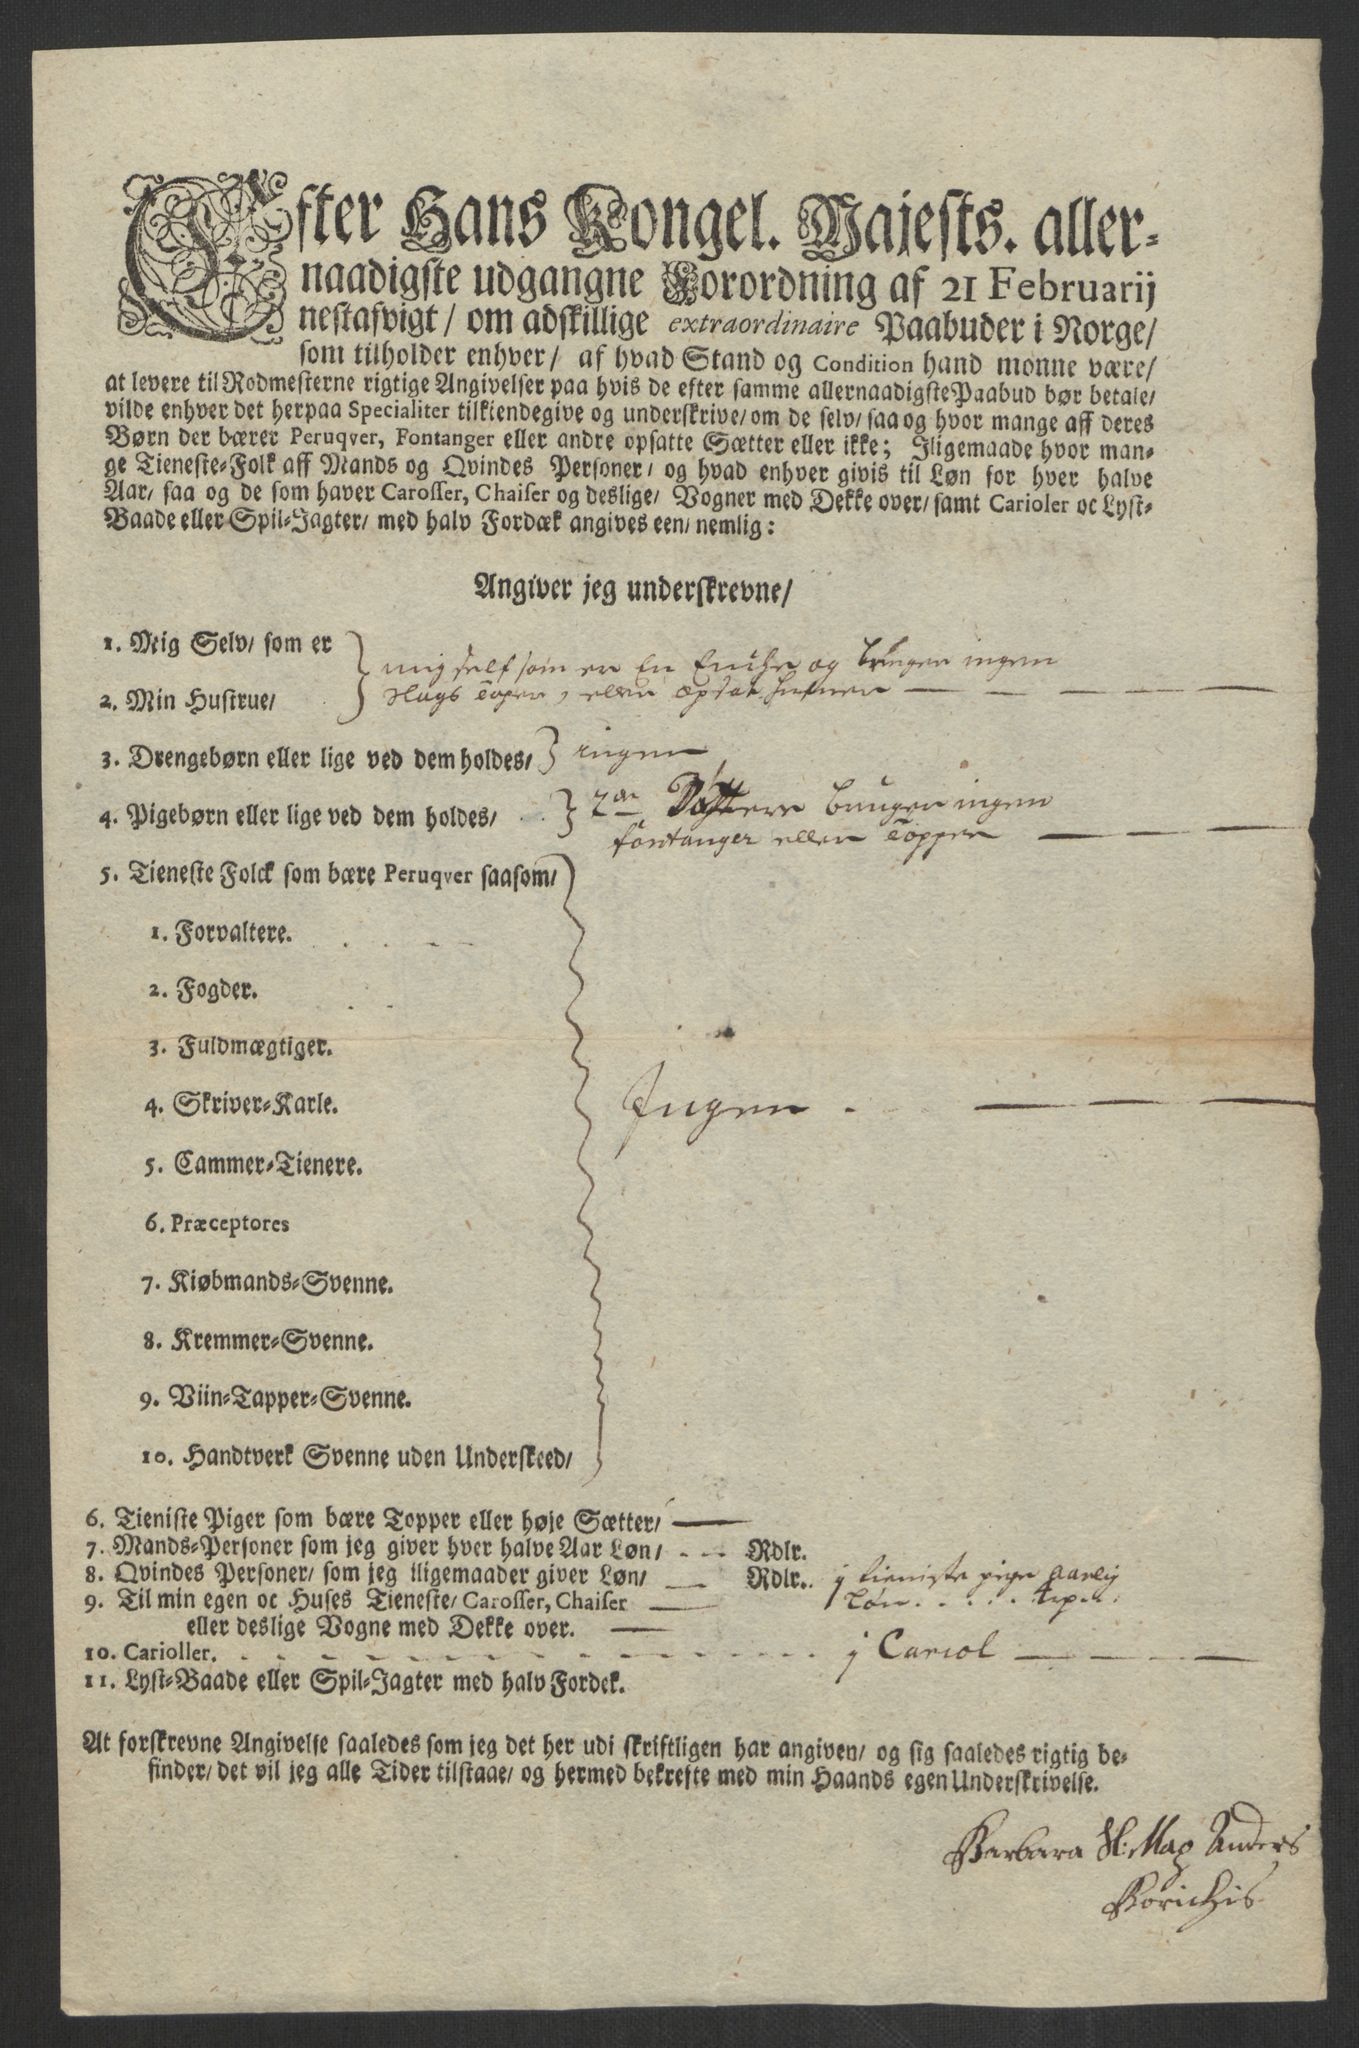 Efter Hans Kongel. Majests. aller-
naadigste udgangne Forordning af 21 Februarij
nestafvigt/ om adskillige extraordinaire Paabuder i Norge/
som tilholder enhver/ af hvad Stand og Condition hand monne være/
at levere til Rodmesterne rigtige Angivelser paa hvis de efter samme allernaadigste Paabud bør betale/
vilde enhver det herpaa Specialiter tilkiendegive og underskrive/ om de selv/ saa og hvor mange aff deres
Børn der bærer Peruqver, Fontanger eller andre opsatte Sætter eller ikke; Iligemaade hvor man-
ge Tieneste-Folk aff Mands og Qvindes Personer/ og hvad enhver givis til Løn for hver halve
Aar/ saa og de som haver Carosser, Chaiser og deslige/ Vogner med Dekke over/ samt Carioler oc Lyst-
Baade eller Spil-Jagter/ med halv Fordæk angives een/ nemlig:
Angiver jeg underskrevne/
1. Mig Selv/ som er
mig self som er En Enche og bruger ingen
2. Min Hustrue/
slags Toper, eller opsat
3. Drengebørn eller lige ved dem holdes/ ingen
4. Pigebørn eller lige ved dem holdes/ 2de Døttere bruger ingen
fontanger eller Topper
5. Tieneste Folck som bære Peruqver saasom/
1. Forvaltere.
2. Fogder.
3. Fuldmægtiger.
4. Skriver-Karle. Ingen
5. Cammer-Tienere.
6. Præceptores
7. Kiøbmands-Svenne.
8. Kremmer-Svenne.
9. Viin-Tapper-Svenne.
10. Handtverk Svenne uden Underskeed/
6. Tieniste Piger som bære Topper eller høje Sætter/
7. Mands-Personer som jeg giver hver halve Aar Løn/ Rdlr.
8. Qvindes Personer/ som jeg iligemaader giver Løn/ Rdlr. j tieniste pige aarlig
9. Til min egen oc Huses Tieneste/ Carosser, Chaiser Løn
eller deslige Vogne med Dekke over.
10. Carioller. j Cariol
11. Lyst-Baade eller Spil-Jagter med halv Fordek.
At forskrevne Angivelse saaledes som jeg det her udi skriftligen har angiven/ og sig saaledes rigtig be-
finder/ det vil jeg alle Tider tilstaae/ og hermed bekrefte med min Haands egen Underskrivelse.
Barbara Sl: Mag Anders
Borichis